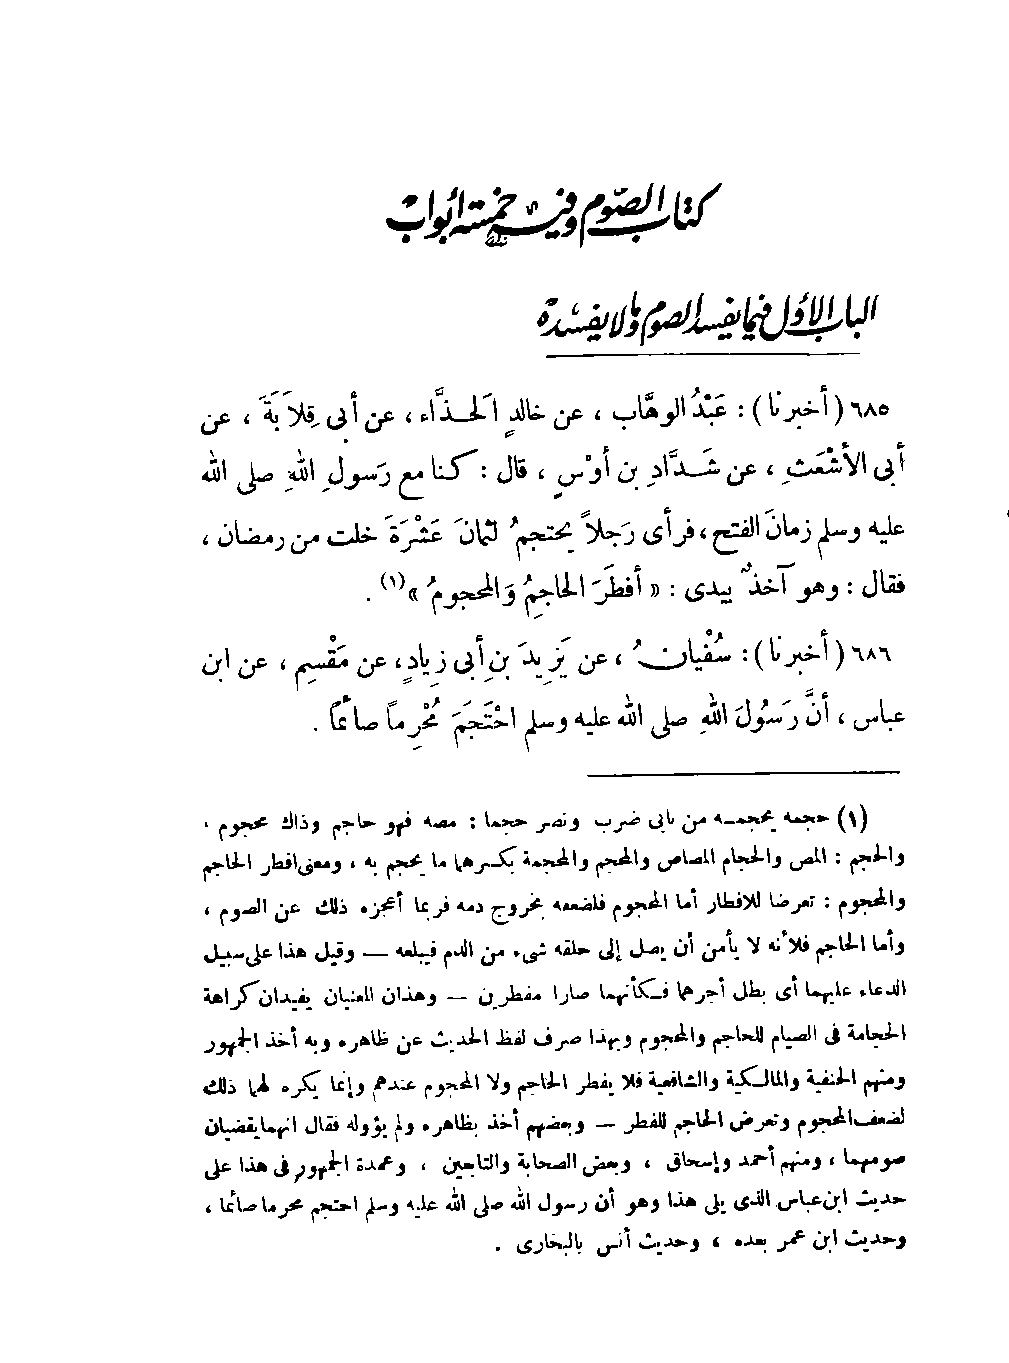 كتاب الصوم وفيه خمسة أبواب
الباب الأول فيما يفسد الصوم وما لا يفسده
٦٨٥ (أخبرنا) : عَبْدُ الوهَّاب ، عن خالدٍ الحذَّاء ، عن أبى قِلاَبَةَ ، عن
أبى الأشْعَثِ ، عن شَدَّادِ بن أوْسٍ ، قال : كنا مع رَسولِ اللهِ صلى الله
عليه وسلم زمانَ الفتح ، فرأى رَجلاً يحتجمُ لثمانَ عَشْرَةَ خلت من رمضان ،
فقال : وهو آخذٌ بيدى : « أفطَرَ الحاجِمُ وَالمحجومُ »(١) .
٦٨٦ (أخبرنا) : سُفْيانُ ، عن يَزِيدَ بنِ أبى زِيادٍ ، عن مَقْسِمٍ ، عن ابن
عباس ، أنَّ رَسُولَ اللهِ صلى الله عليه وسلم احْتَجَمَ مُحْرِماً صائماً .
(١) حجمه يحجمه من بابى ضرب ونصر حجما : مصه فهو حاجم وذاك محجوم ،
والحجم : المص والحجام المصاص والمحجم والمحجمة بكسرهما ما يحجم به ، ومعنى افطار الحاجم
والمحجوم : تعرضا للافطار أما المحجوم فلضعفه بخروج دمه فربما أعجزه ذلك عن الصوم ،
وأما الحاجم فلأنه لا يأمن أن يصل إلى حلقه شىء من الدم فيبلعه — وقيل هذا على سبيل
الدعاء عليهما أى بطل أجرهما فكأنهما صارا مفطرين — وهذان المعنيان يفيدان كراهة
الحجامة فى الصيام للحاجم والمحجوم وبهذا صرف لفظ الحديث عن ظاهره وبه أخذ الجمهور
ومنهم الحنفية والمالكية والشافعية فلا يفطر الحاجم ولا المحجوم عندهم وإنما يكره لهما ذلك
لضعف المحجوم وتعرض الحاجم للفطر — وبعضهم أخذ بظاهره ولم يؤوله فقال انهما يقضيان
صومهما ، ومنهم أحمد وإسحاق ، وبعض الصحابة والتابعين ، وعمدة الجمهور فى هذا على
حديث ابن عباس الذى يلى هذا وهو أن رسول الله صلى الله عليه وسلم احتجم محرما صائما ،
وحديث ابن عمر بعده ، وحديث أنس بالبخارى .